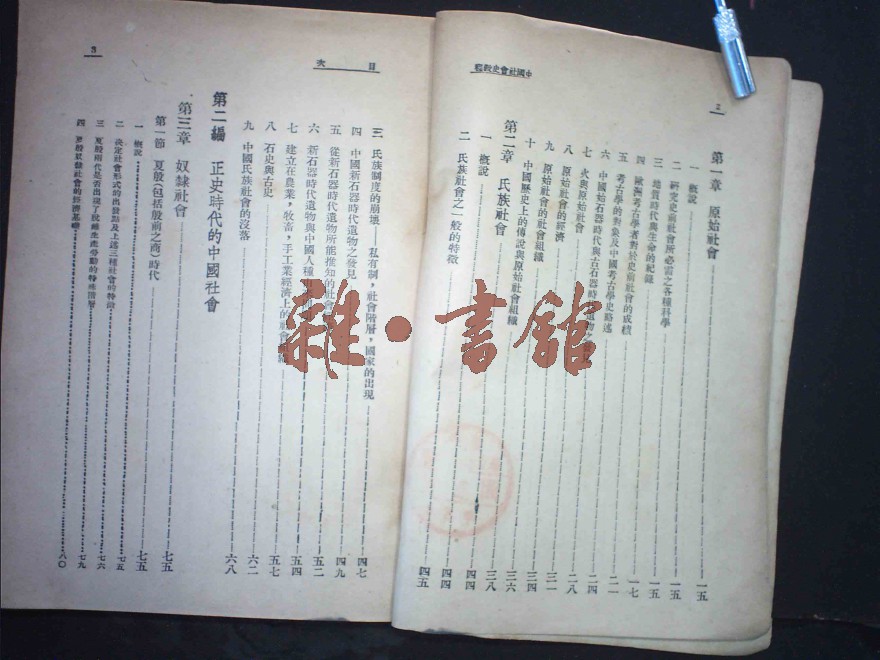 中國社會史教程
2
第一章 原始社會 一五
一 概說 一五
二 研究史前社會所必需之各種科學 一五
三 地質時代與生命的紀錄 一七
四 歐洲考古學者對於史前社會的成績 二一
五 考古學的對象及中國考古學史略述 二四
六 中國始石器時代與古石器時 物之 二八
七 火與原始社會 三一
八 原始社會的經濟 三四
九 原始社會的社會組織 三六
十 中國歷史上的傳說與原始社會組織 三八
第二章 氏族社會 四四
一 概說 四四
二 氏族社會之一般的特徵 四五
目次
3
三 氏族制度的崩壞——私有制，社會階層，國家的出現 四七
四 中國新石器時代遺物之發見 四九
五 從新石器時代遺物所能推知的社會 五二
六 新石器時代遺物與中國人種 五四
七 建立在農業，牧畜，手工業經濟上的社會 五七
八 石史與古史 六二
九 中國氏族社會的沒落 六八
第二編 正史時代的中國社會
第三章 奴隸社會 七五
第一節 夏殷（包括殷前之商）時代 七五
一 概說 七五
二 決定社會形式的出發點及上述三種社會的特徵 七六
三 夏殷兩代是否出現了脫離生產勞動的特殊階層 七九
四 夏殷奴隸社會的經濟基礎 八〇
雜·書館